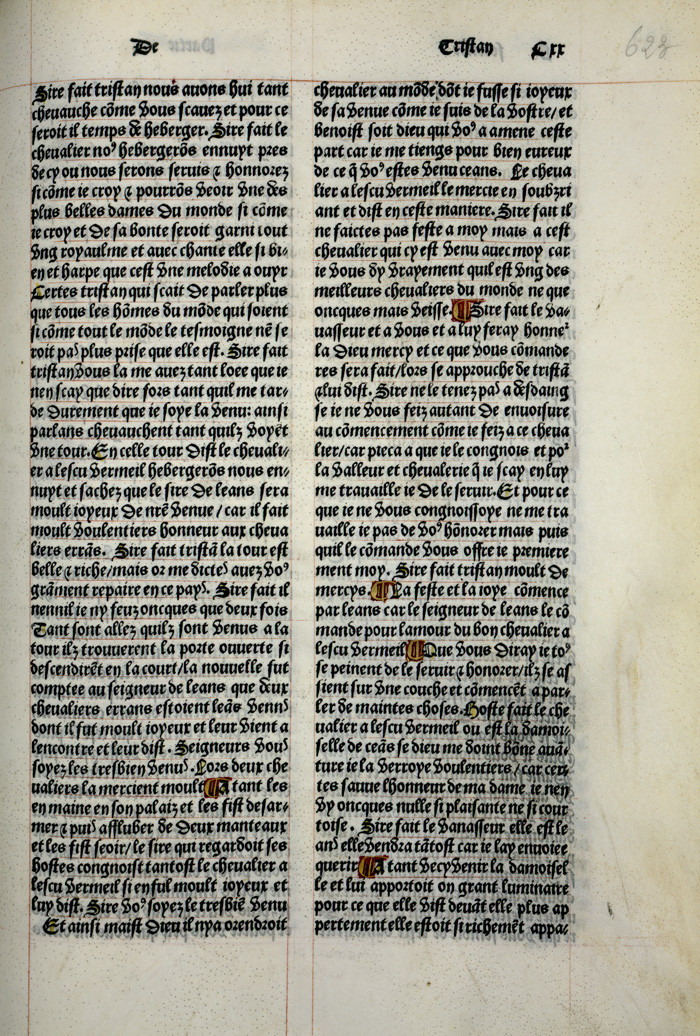 De
Tristan Cxx
623
Sire fait tristan nous auons hui tant
cheuauche cõme vous scauez et pour ce
seroit il temps de heberger. Sire fait le
cheualier no⁹ hebergerõs ennuyt pres
de cy ou nous serons seruis ⁊ honnorez
si cõme ie croy ⁊ pourrõs veoir vne des
plus belles dames du monde si cõme
ie croy et de sa bonte seroit garni tout
vng royaulme et auec chante elle si bi⸗
en et harpe que cest vne melodie a ouyr
Certes tristan qui scait de parler plus
que tous les hõmes du mõde qui soient
si cõme tout le mõde le tesmoigne nẽ se
roit pas plus prise que elle est. Sire fait
tristan vous la me auez tant loee que ie
nen scay que dire fors tant quil me tar⸗
de durement que ie soye la venu: ainsi
parlans cheuauchent tant quilz voyẽt
vne tour. En celle tour dist le cheuali⸗
er a lescu vermeil hebergerõs nous en⸗
nuyt et sachez que le sire de leans sera
moult ioyeux de nr̃e venue / car il fait
moult voulentiers honneur aux cheua
liers errãs. Sire fait tristã la tour est
belle ⁊ riche/mais or me dictes auez vo⁹
grãment repaire en ce pays. Sire fait il
nennil ie ny feuz oncques que deux fois
Tant sont allez quilz sont venus a la
tour ilz trouuerent la porte ouuerte si
descendirẽt en la court/la nouuelle fut
comptee au seigneur de leans que deux
cheualiers errans estoient leãs venus
dont il fut moult ioyeux et leur vient a
lencontre et leur dist. Seigneurs vous
soyez les tresbien venus. Lors deux che
ualiers la mercient moult ¶A tant les
en maine en son palaiz et les fist desar⸗
mer ⁊ puis affluber de deux manteaux
et les fist seoir/le sire qui regardoit ses
hostes congnoist tantost le cheualier a
lescu vermeil si en ful moult ioyeux et
luy dist. Sire vo⁹ soyez le tresbiẽ venu
Et ainsi maist dieu il nya orendroit
cheualier au mõde dõt ie fusse si ioyeux
de sa venue cõme ie suis de la vostre/et
benoist soit dieu qui vo⁹ a amene ceste
part car ie me tiengs pour bien eureux
de ce q̃ vo⁹ estes venu ceans. Le cheua
lier a lescu vermeil le mercie en soubzri
ant et dist en ceste maniere. Sire fait il
ne faictes pas feste a moy mais a cest
cheualier qui cy est venu auec moy car
ie vous dy vrayement quil est vng des
meilleurs cheualiers du monde ne que
oncques mais veisse. ¶Sire fait le va⸗
uasseur et a vous et a luy feray honne²
la dieu mercy et ce que vous cõmande
res sera fait/lors se approuche de tristã
⁊ lui dist. Sire ne le tenez pas a desdaing
se ie ne vous feiz autant de enuoisure
au cõmencement cõme ie feiz a ce cheua
lier/car pieca a que ie le congnois et po²
la valleur et cheualerie q̃ ie scay en luy
me trauaille ie de le seruir. Et pour ce
que ie ne vous congnoissoye ne me tra
uaille ie pas de vo⁹ hõnorer mais puis
quil le cõmande vous offre ie premiere
ment moy. Sire fait tristan moult de
mercys. ¶La feste et la ioye cõmence
par leans car le seigneur de leans le cõ
mande pour lamour du bon cheualier a
lescu vermeil ¶Que vous diray ie to⁹
se peinent de le seruir ⁊ honorer/ilz se as
sient sur vne couche et cõmencẽt a par⸗
ler de maintes choses. Hoste fait le che
ualier a lescu vermeil ou est la damoi⸗
selle de ceãs se dieu me doint bõne auã⸗
ture ie la verroye voulentiers / car cer⸗
tes sauue lhonneur de ma dame ie nen
vy oncques nulle si plaisante ne si cour
toise. Sire fait le vanasseur elle est le
ans elle vendra tãtost car ie lay enuoiee
querir ¶A tant vecy venir la damoisel
le et lui apportoit on grant luminaire
pour ce que elle vist deuãt elle plus ap
pertement elle estoit si richemẽt appa⸗